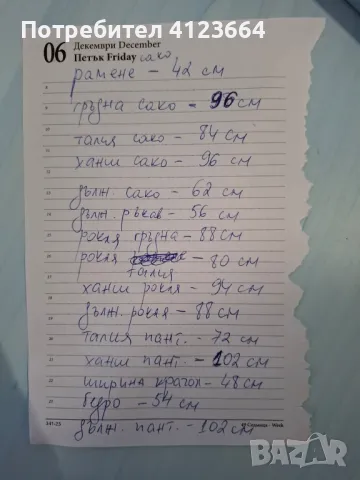 Потребител 4123664
06 Декември December
Петък Friday сако,
рамене - 42 см
гръдна сако - 96 см
талия сако - 84 см
ханш сако - 96 см
дълж. сако - 62 см
дълж. ръкав - 56 см
рокля гръдна - 88 см
рокля талия - 80 см
ханш рокля - 94 см
дълж. рокля - 88 см
талия пант. - 72 см
ханш пант. - 102 см
ширина крачол - 48 см
бедро - 54 см
дълж. пант. - 102 см
341-25
Week
BAZAR
bg